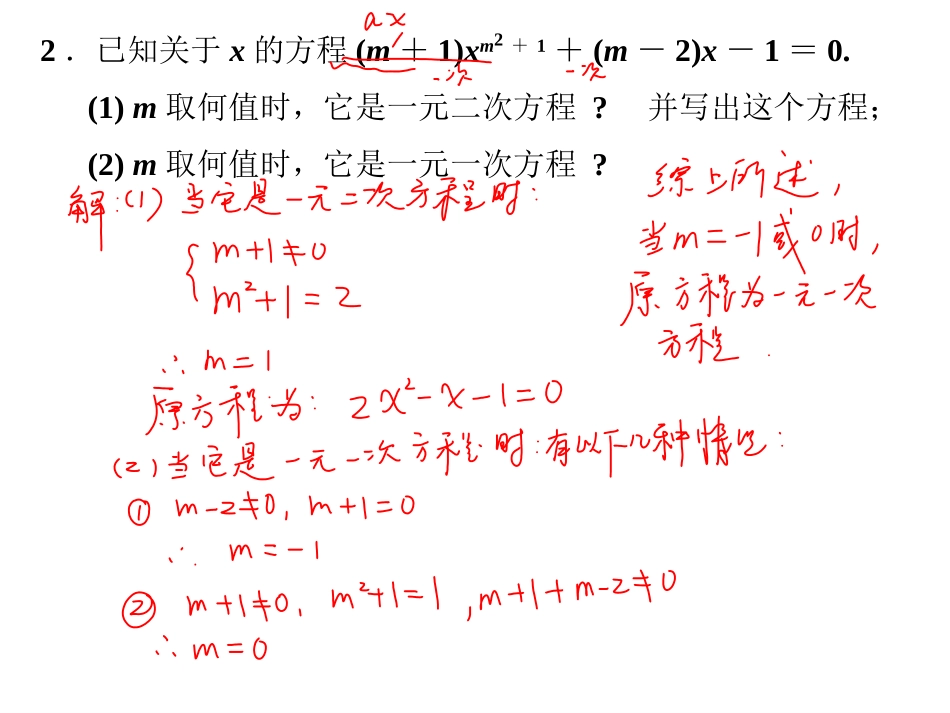 ax
2． 已知关于 x 的方程 (m＋1)x^{m²＋1}＋(m－2)x－1＝0.
一次 一次
(1) m 取何值时，它是一元二次方程 ? 并写出这个方程；
(2) m 取何值时，它是一元一次方程 ?
解:(1) 当它是一元二次方程时:
{ m+1≠0
m²+1=2
∴ m=1
原方程为: 2x²-x-1=0
(2)当它是一元一次方程时:有以下几种情况:
① m-2≠0, m+1=0
∴ m=-1
② m+1≠0, m²+1=1, m+1+m-2≠0
∴ m=0
综上所述,
当m=-1或0时,
原方程为一元一次
方程.